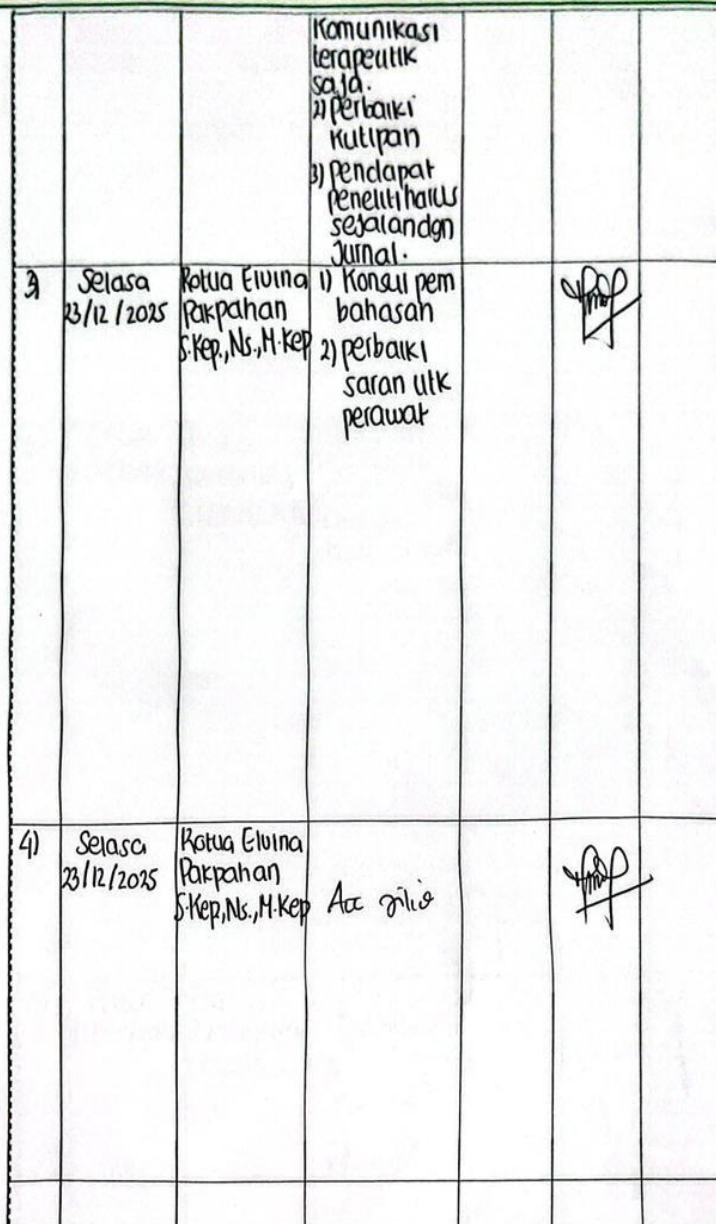 Komunikasi
terapeutik
saja.
2) perbaiki
kutipan
3) pendapat
peneliti harus
sejalan dgn
Jurnal.
3)
Selasa
23/12/2025
Rotua Elvina
Pakpahan
S.Kep.,Ns.,M.Kep
1) Konsul pem
bahasan
2) perbaiki
saran utk
perawat
4)
Selasa
23/12/2025
Rotua Elvina
Pakpahan
S.Kep,Ns.,M.Kep
Acc